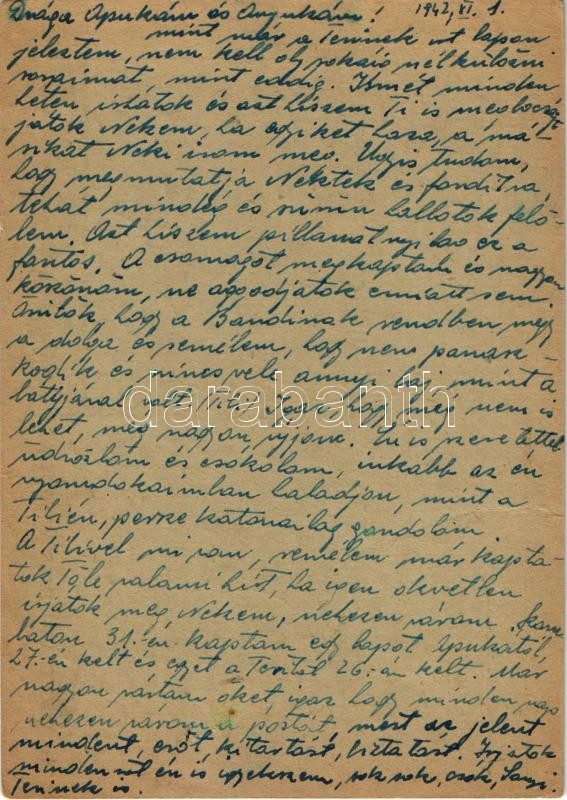 Drága Apukám és Anyukám! 1942, VI. 1.
mint már a Terinek irt lapon
jeleztem, nem kell oly sokáig nélkülözni
soraimat mint eddig. Ismét minden
héten írhatok és azt hiszem Ti is megbocsájt-
játok Nekem, ha egyiket haza, a má-
sikat Neki irom meg. Ugyis tudom,
hogy megmutatja Nektek és forditva,
tehát mindég és sürün hallotok felő-
lem. Azt hiszem pillanatnyilag ez a
fontos. A csomagot megkaptam és nagyon
köszönöm, ne aggodjatok emiatt sem.
Örülök, hogy a Bandinak rendben megy
a dolga és remélem, hogy nem panasz-
kodik és nincs vele annyi baj, mint a
bátyjával volt
lehet, még nagyon ujonc. Őt is szeretettel
üdvözlöm és csókolom, inkább az én
nyomdokaimban haladjon, mint a
Tibién, persze katonailag gondolom.
A Tibivel mi van, remélem már kapta-
tok Tőle valami hirt, ha igen okvetlen
irjátok meg Nekem, nehezen várom. Szom-
baton 31.-én kaptam egy lapot Apukától,
27-én kelt és egyet a Teritől 26.-án kelt. Már
nagyon vártam őket, igaz hogy minden nap
nehezen várom a postát, mert az jelent
mindent, erőt, kitartást, biztatást. Irjatok
minden nap én is igyekszem, sok sok csók,
Terinek is.